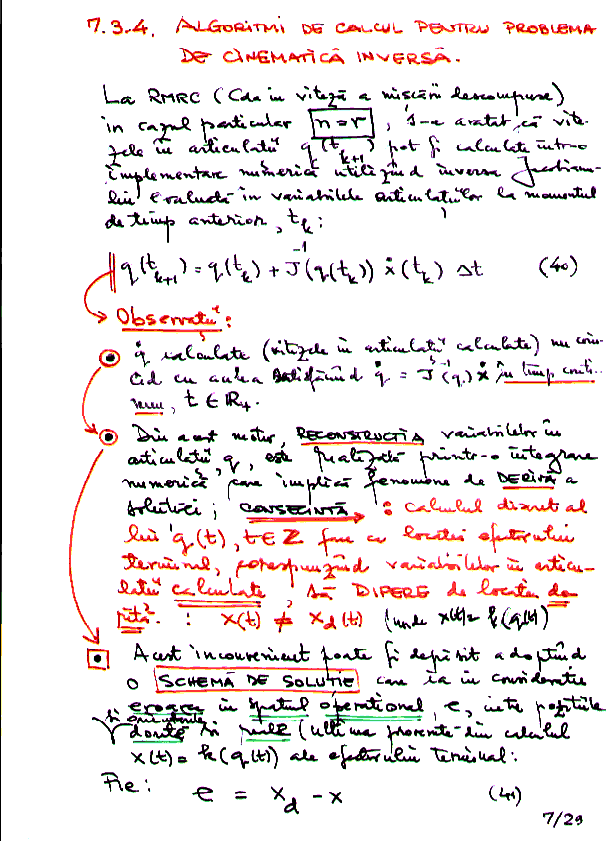 7.3.4. ALGORITMI DE CALCUL PENTRU PROBLEMA
DE CINEMATICĂ INVERSĂ.
La RMRC (Cda în viteză a mișcării descompuse)
în cazul particular n=r, s-a arătat că vite-
zele în articulații q(t_{k+1}) pot fi calculate într-o
implementare numerică utilizînd inversa Jacobianu-
lui evaluată în variabilele articulațiilor la momentul
de timp anterior, t_k:
q(t_{k+1}) = q(t_k) + J^{-1}(q(t_k)) ẋ(t_k) Δt (40)
Observații:
q̇ calculate (vitezele în articulații calculate) nu coin-
cid cu acelea satisfăcînd q̇ = J^{-1}(q) ẋ în timp conti-
nuu, t ∈ R+.
Din acest motiv, RECONSTRUCȚIA variabilelor în
articulații, q, este realizată printr-o integrare
numerică care implică fenomene de DERIVĂ a
soluției; CONSECINȚĂ: calculul discret al
lui q(t), t∈Z face ca locația efectorului
terminal, corespunzînd variabilelor în articu-
lații calculate, să DIFERE de locația do-
rită. : x(t) ≠ x_d(t) (unde x(t)=k(q(t))
Acest inconvenient poate fi depășit adoptînd
o SCHEMĂ DE SOLUȚIE care ia în considerație
eroarea în spațiul operațional, e, între pozițiile
și orientările
dorite și reale (ultima provenite din calculul
x(t) = k(q(t)) ale efectorului terminal:
Fie: e = x_d - x (41)
7/29